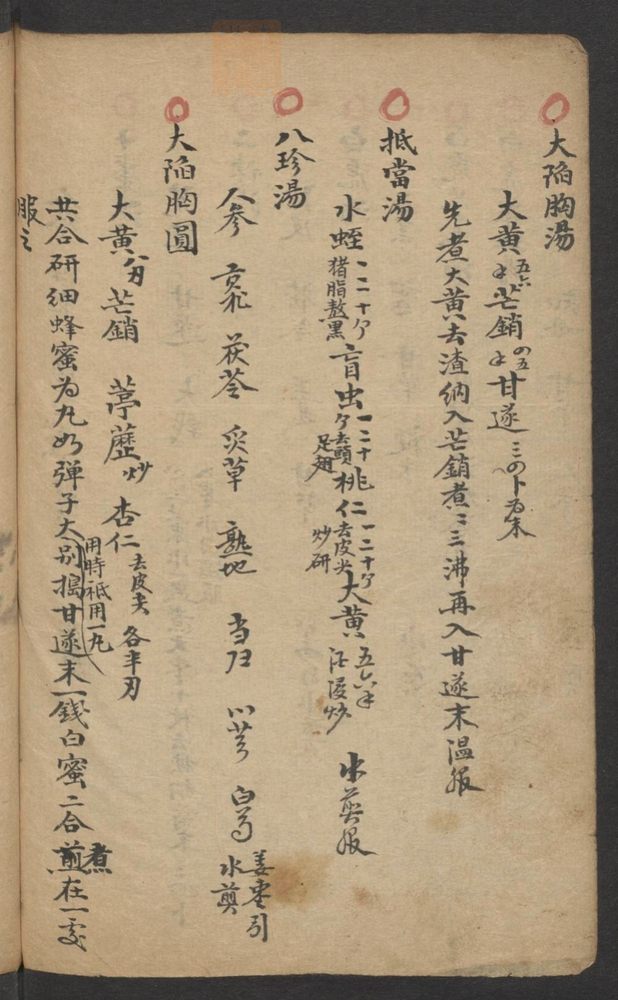 大陷胸湯
大黄五六 芒銷の五 甘遂三の卜為末
先煮大黄去渣纳入芒銷煮二三沸再入甘遂末温服
抵當湯
水蛭一二十个猪脂熬黑 盲虫一二十个去頭足翅 桃仁一二十个去皮尖炒研 大黄五六 水煎服
八珍湯
人參 茯苓 炙草 熟地 当归 川芎 白芍 姜枣引水煎
大陷胸圓
大黄 芒銷 葶藶炒 杏仁去皮尖 各半刃
共合研细蜂蜜为丸如弹子大用時祇用一丸别搗甘遂末一錢白蜜二合煎煮在一處
服之